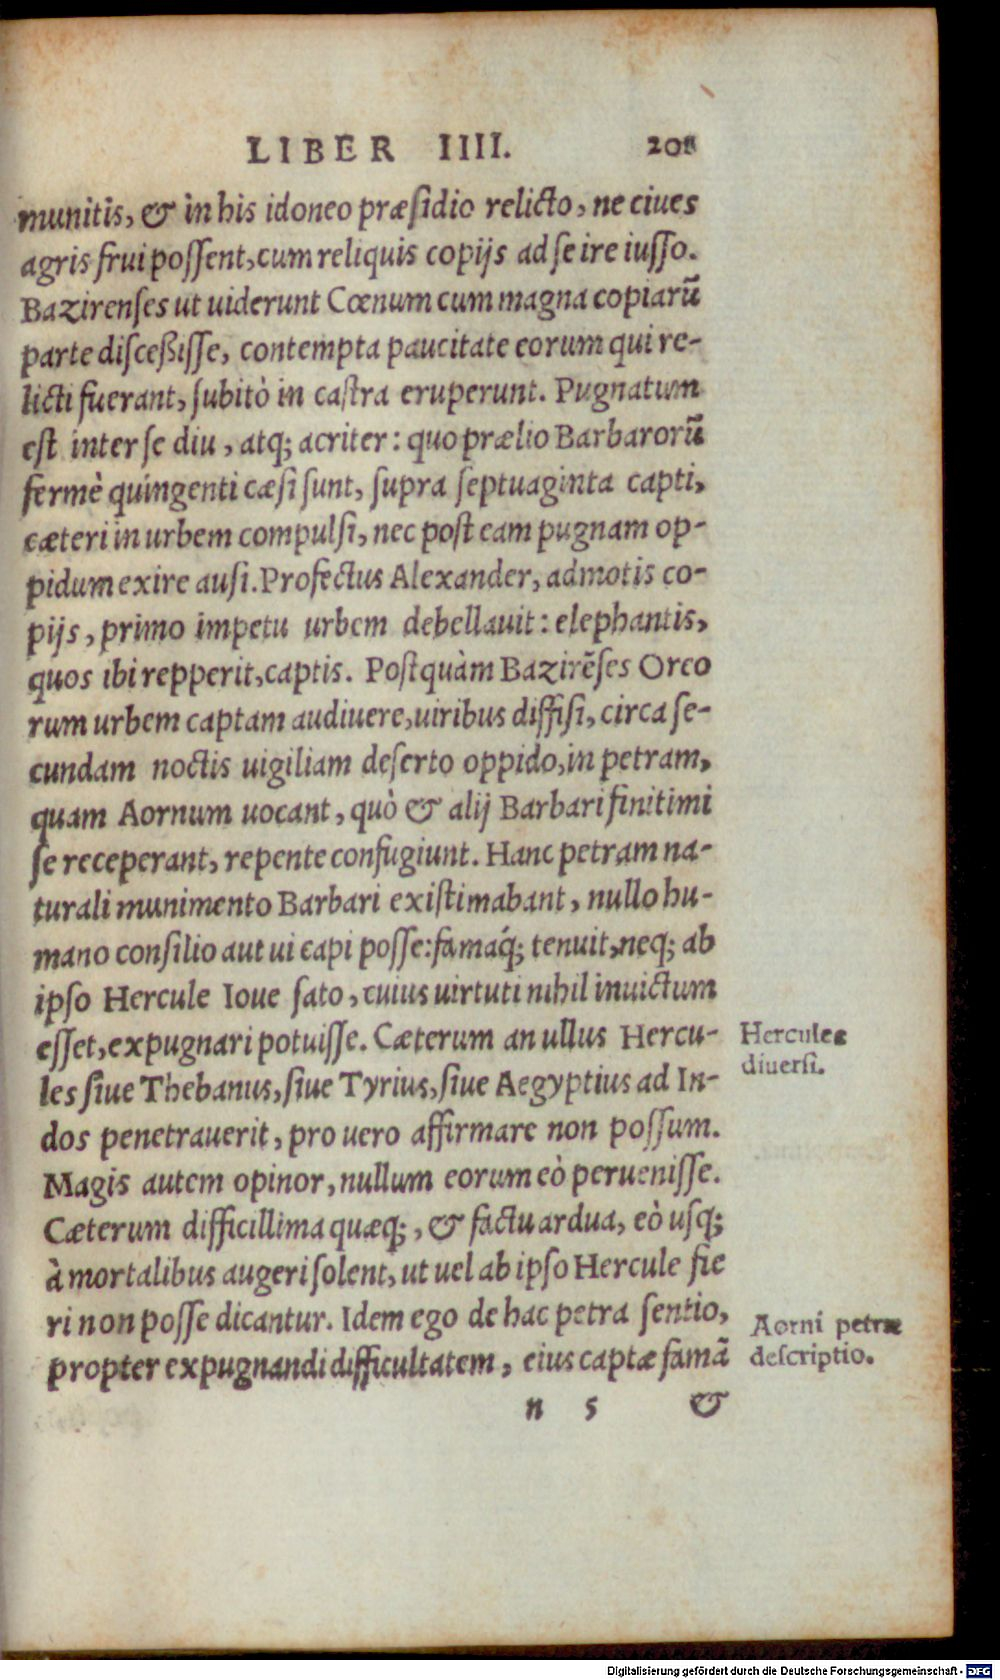 LIBER IIII. 201
munitis, & in his idoneo præsidio relicto, ne ciues
agris frui possent, cum reliquis copijs ad se ire iusso.
Bazirenses ut uiderunt Cœnum cum magna copiarũ
parte disceßisse, contempta paucitate eorum qui re-
licti fuerant, subitò in castra eruperunt. Pugnatum
est inter se diu, atq; acriter: quo prælio Barbarorũ
fermè quingenti cæsi sunt, supra septuaginta capti,
cæteri in urbem compulsi, nec post eam pugnam op-
pidum exire ausi. Profectus Alexander, admotis co-
pijs, primo impetu urbem debellauit: elephantis,
quos ibi repperit, captis. Postquàm Bazirẽses Oreo
rum urbem captam audiuere, uiribus diffisi, circa se-
cundam noctis uigiliam deserto oppido, in petram,
quam Aornum uocant, quò & alij Barbari finitimi
se receperant, repente confugiunt. Hanc petram na-
turali munimento Barbari existimabant, nullo hu-
mano consilio aut ui capi posse: famaq́; tenuit, neq; ab
ipso Hercule Ioue sato, cuius uirtuti nihil inuictum
esset, expugnari potuisse. Cæterum an ullus Hercu-
les siue Thebanus, siue Tyrius, siue Aegyptius ad In-
dos penetrauerit, pro uero affirmare non possum.
Magis autem opinor, nullum eorum eò peruenisse.
Cæterum difficillima quæq;, & factu ardua, eò usq;
à mortalibus augeri solent, ut uel ab ipso Hercule fie
ri non posse dicantur. Idem ego de hac petra sentio,
propter expugnandi difficultatem, eius captæ famã
n 5 &
Hercules
diuersi.
Aorni petræ
descriptio.
Digitalisierung gefördert durch die Deutsche Forschungsgemeinschaft - DFG